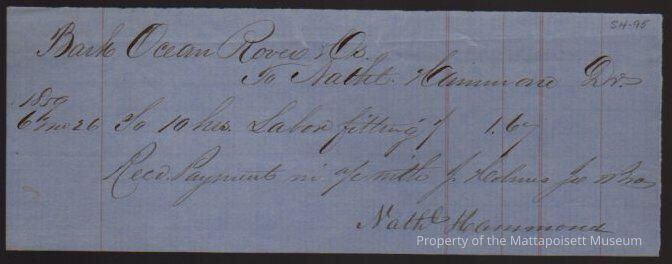 SH-95
Bark Ocean Rover & Os.
To Nathl. Hammond Drs.
1859
6th mo 26 To 10 hrs. Labor fitting 1.67
Recd. Payment in a/c with J. Holmes Jr & Bro
Nathl Hammond
Property of the Mattapoisett Museum